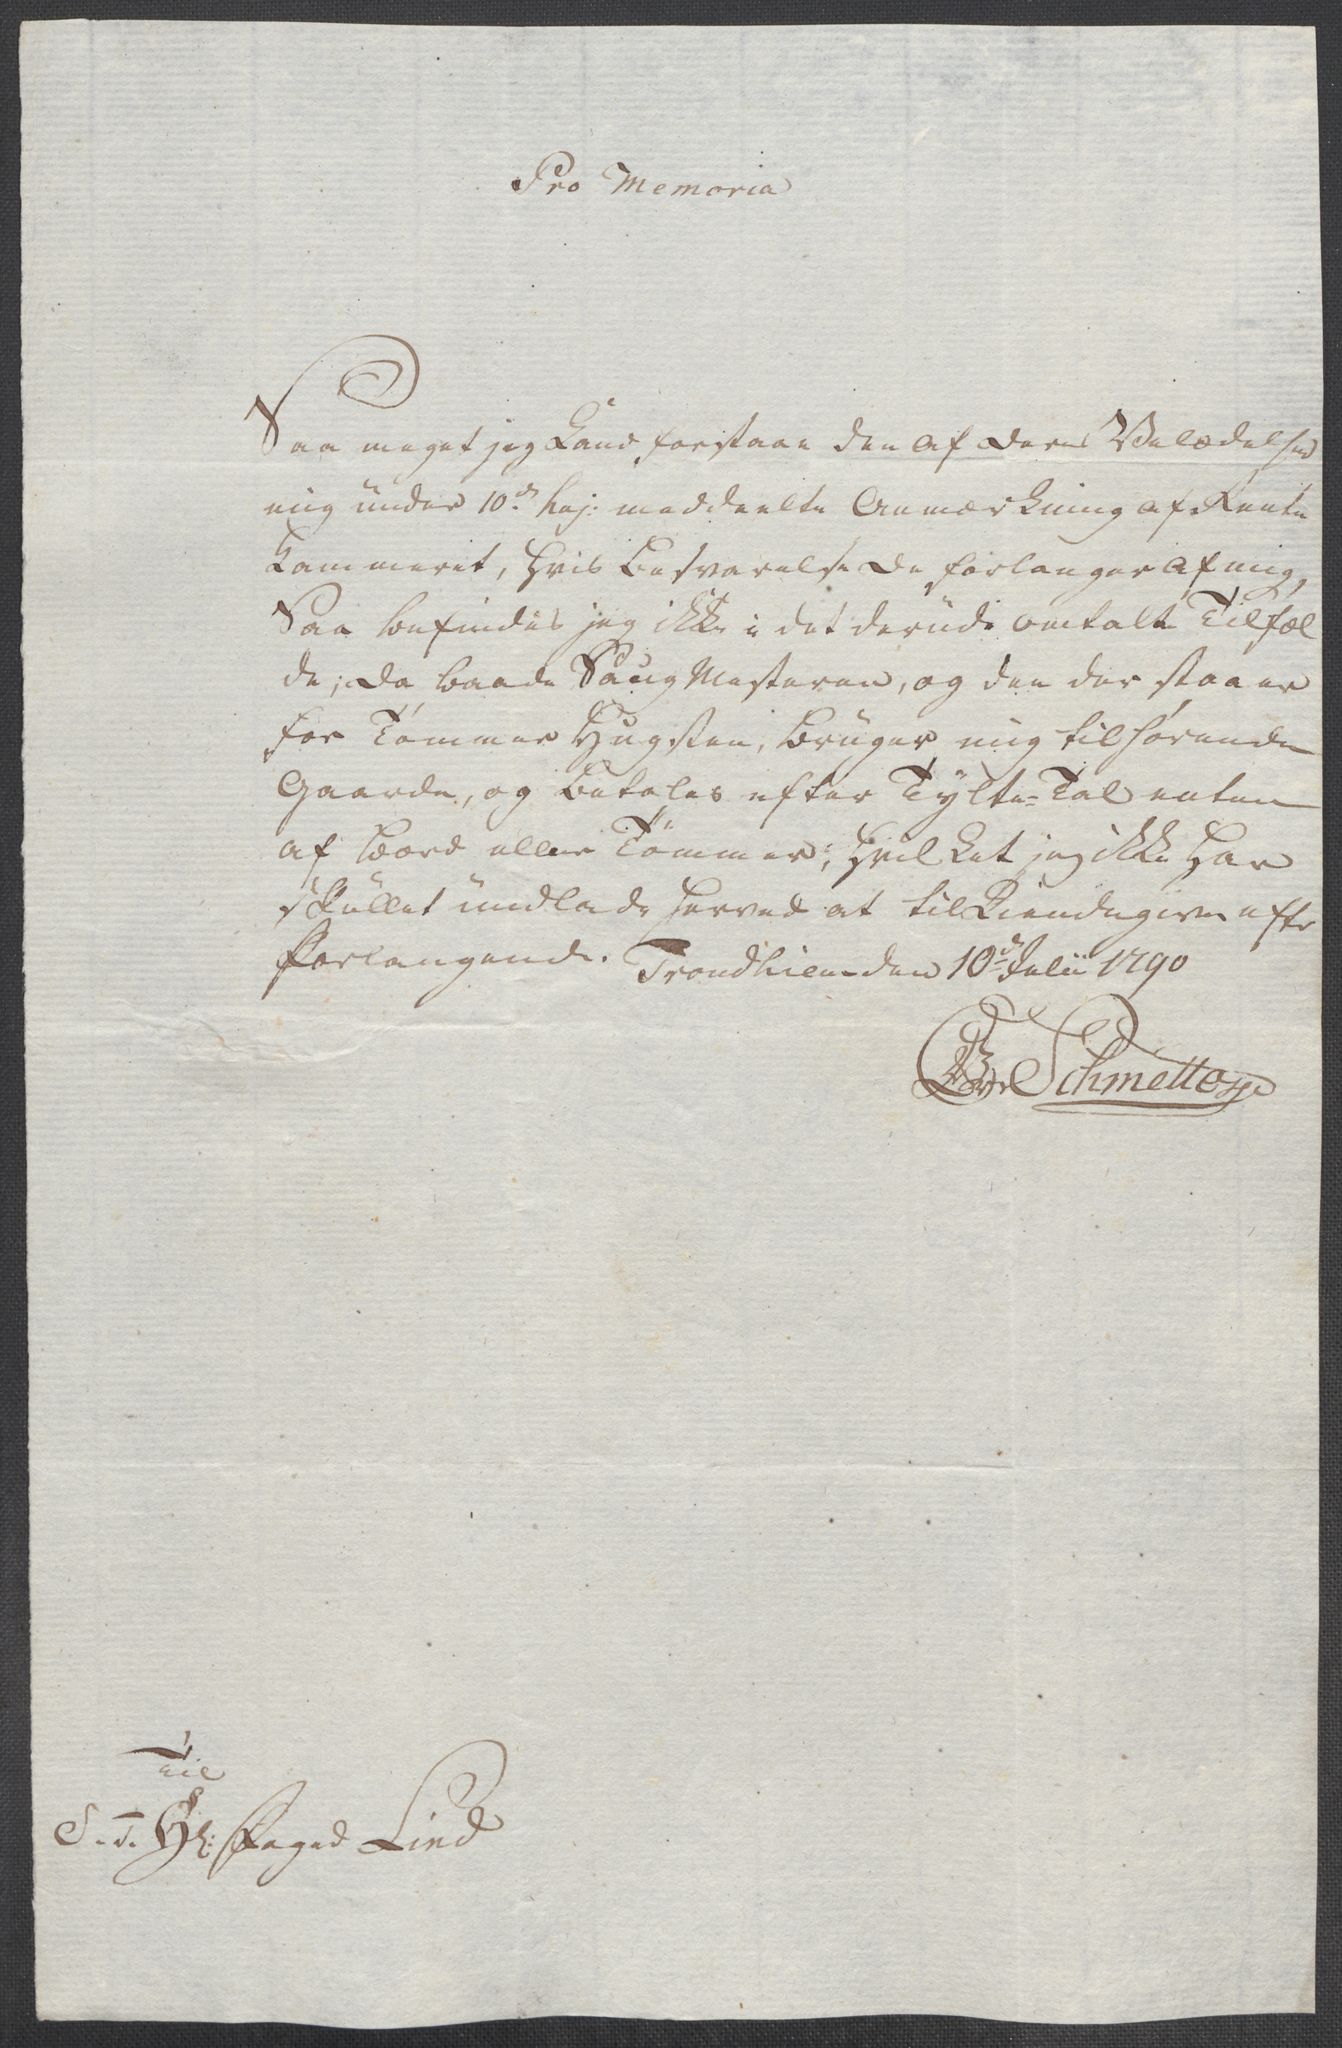 Pro Memoria
Saa meget jeg kand forstaae den af deres Velædelhed
mig ünder 10de huj: meddeelte Anmærkning af Rente
Kammeret, hvis besvarelse de forlanger af mig,
Saa befindes jeg ikke i det derüdi omtalte Tilfæl
de; da baade Saug Mesteren, og den der staaer
for Tømmer Hugsten, brüger mig tilhørende
Gaarde, og betales efter Tylte-Tal enten
af bord eller Tømmer; hvilket jeg ikke har
skullet ündlade herved at tilkiendegive efter
forlangende. Trondhiem den 10de Julii 1790
Schmettow
Til
S. T. Hr: Foged Lind